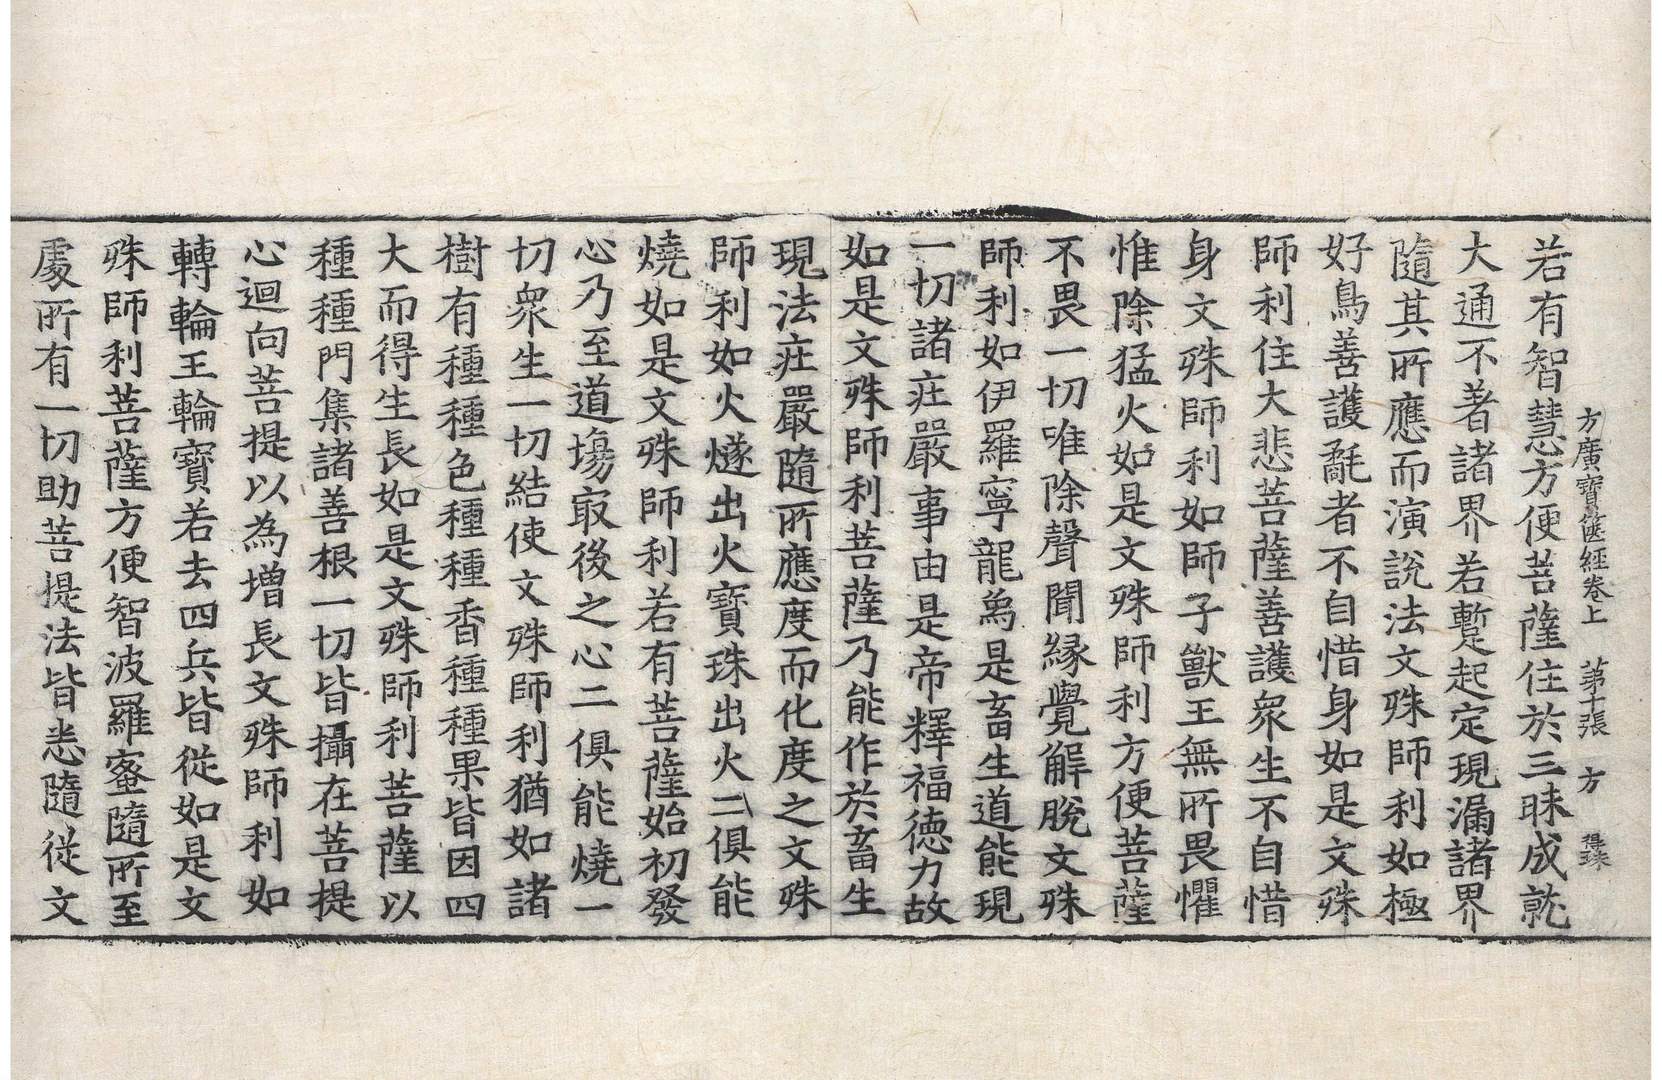 方廣寶篋經卷上 第十張 方 得珠
若有智慧方便菩薩住於三昧成就
大通不著諸界若蹔起定現漏諸界
隨其所應而演說法文殊師利如極
好鳥善護毳者不自惜身如是文殊
師利住大悲菩薩善護衆生不自惜
身文殊師利如師子獸王無所畏懼
惟除猛火如是文殊師利方便菩薩
不畏一切唯除聲聞縁覺解脫文殊
師利如伊羅寧龍象是畜生道能現
一切諸莊嚴事由是帝釋福德力故
如是文殊師利菩薩乃能作於畜生
現法莊嚴隨所應度而化度之文殊
師利如火燧出火寶珠出火二俱能
燒如是文殊師利若有菩薩始初發
心乃至道場㝡後之心二俱能燒一
切衆生一切結使文殊師利猶如諸
樹有種種色種種香種種果皆因四
大而得生長如是文殊師利菩薩以
種種門集諸善根一切皆攝在菩提
心迴向菩提以為增長文殊師利如
轉輪王輪寶若去四兵皆從如是文
殊師利菩薩方便智波羅蜜隨所至
處所有一切助菩提法皆悉隨從文